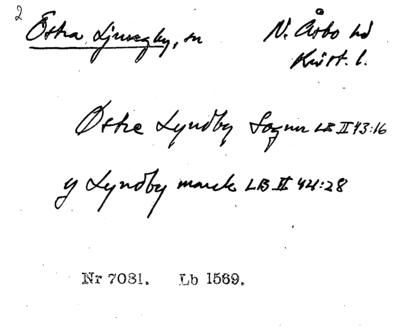 2
Östra Ljungby, sn N. Åsbo hd
Krist. l.
Østre Lyndby Sognn LB II 43:16
y Lyndby marck LB II 44:28
Nr 7081. Lb 1569.